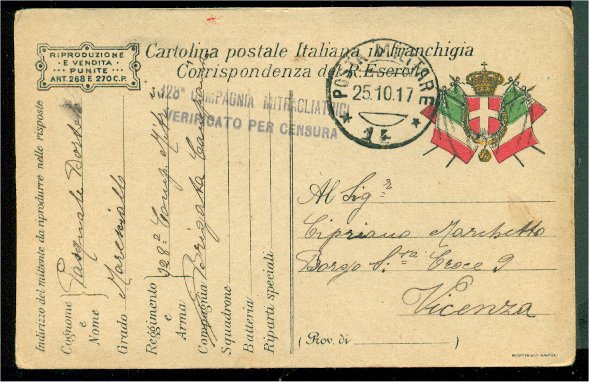 RIPRODUZIONE
E VENDITA
PUNITE
ART. 268 E 270 C.P.
Cartolina postale Italiana in franchigia
Corrispondenza del R. Esercito
POSTA MILITARE
25.10.17
128ª COMPAGNIA MITRAGLIATRICI
VERIFICATO PER CENSURA
Indirizzo del mittente da riprodurre nelle risposte
Cognome e Nome Pasquale
Grado Maresciallo
Reggimento 128ª Comp. Mitr.
e
Arma
Compagnia Brigata
Squadrone
Batteria
Riparti speciali
Al Sigʳ
Cipriano Marchetto
Borgo S.ta Croce 9
Vicenza
(Prov. di )